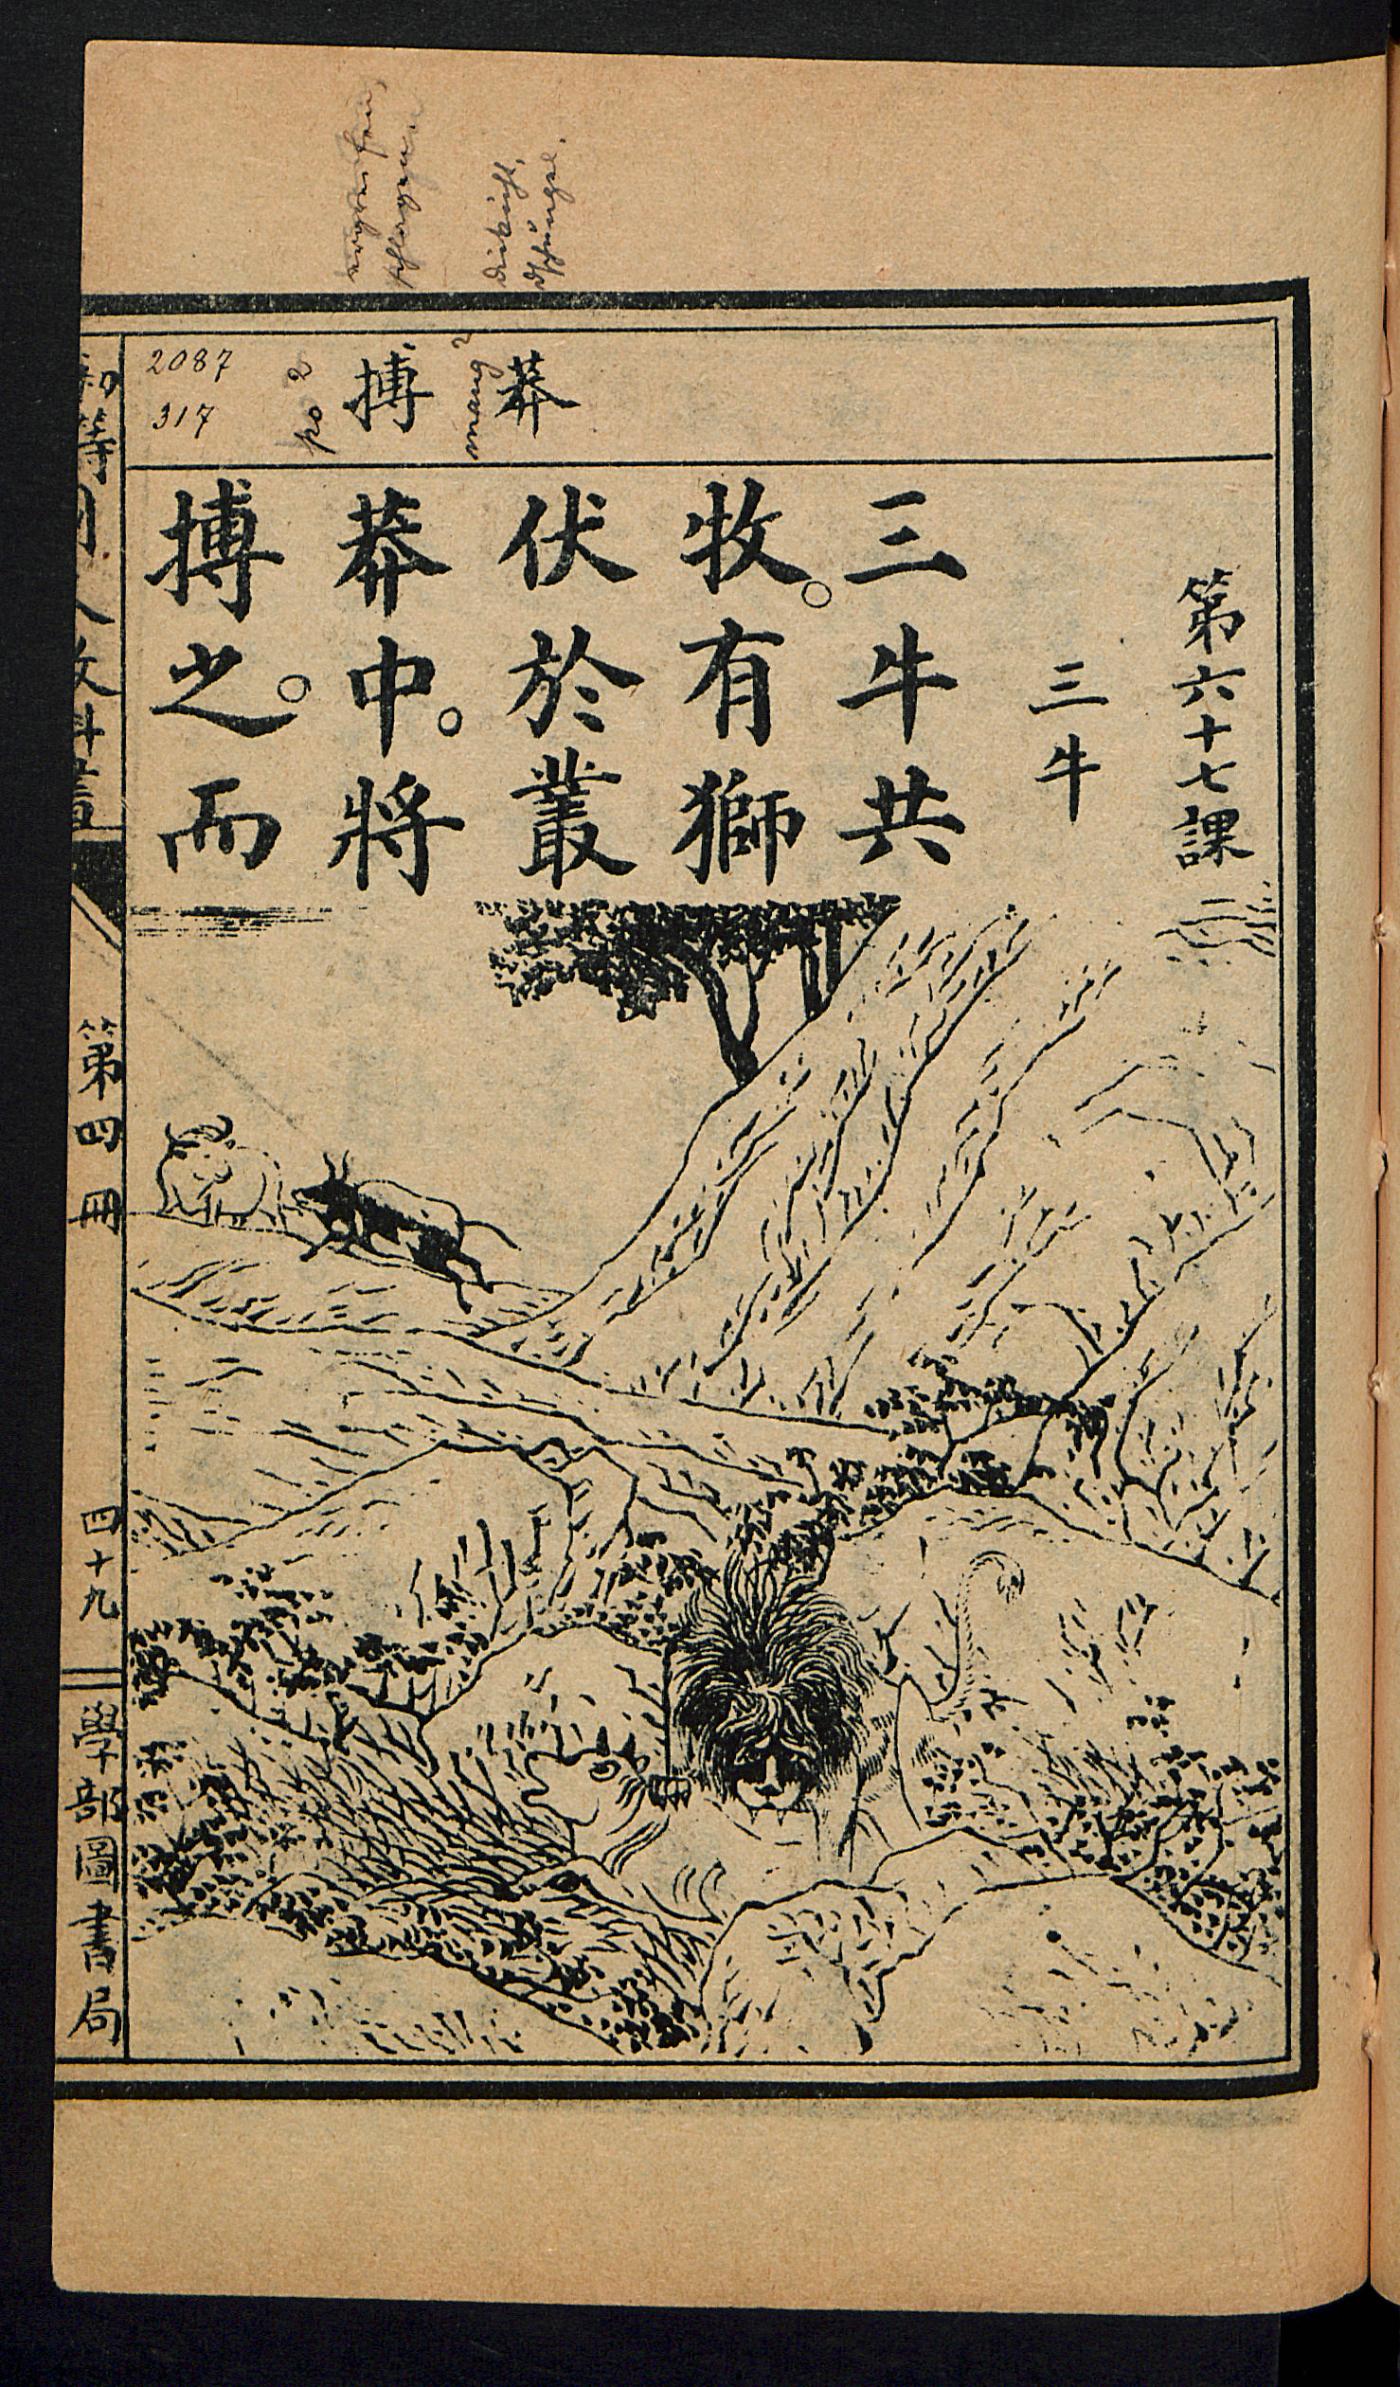 第六十七課
三牛
三牛共
牧。有獅
伏於叢
莽中。將
搏之。而
莽
mang 2
搏
po 2
2087
317
第四冊
四十九
學部圖書局